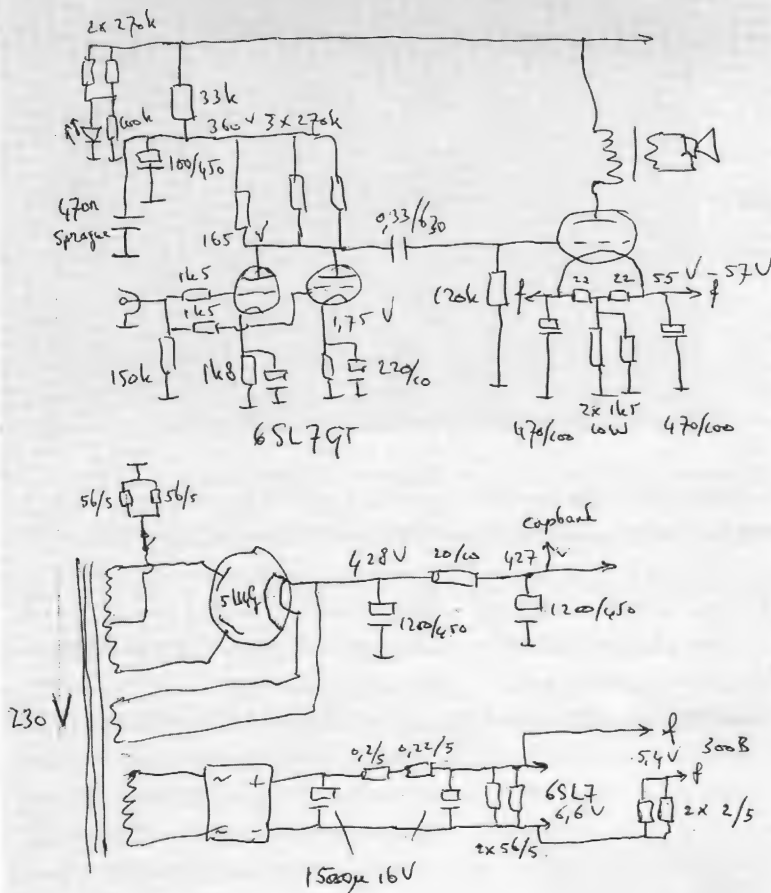 2x 270k
33k
100k
360V 3x270k
100/450
470n
Sprague
165 V
0,33/630
1k5
1k5
1,75 V
120k
f
22
22
55 V - 57 V
f
150k
1k8
220/10
470/100
2x 1k5
10W
470/100
6SL7GT
56/5
56/5
capbank
428 V
20/10
427 V
1200/450
1200/450
230 V
0,2/5
0,22/5
f
~ +
~ -
6SL7
6,6 V
5,4 V
300B
f
2x 2/5
2x56/5
15000µ 16V